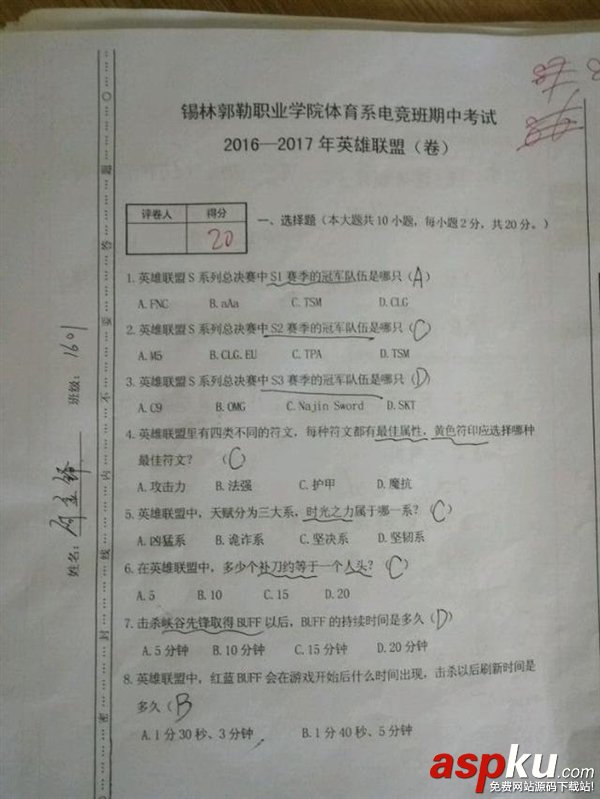 锡林郭勒职业学院体育系电竞班期中考试
2016—2017年英雄联盟（卷）
评卷人 得分
20
一、选择题（本大题共10小题，每小题2分，共20分。）
1. 英雄联盟S系列总决赛中S1赛季的冠军队伍是哪只（A）
A. FNC B. aAa C. TSM D. CLG
2. 英雄联盟S系列总决赛中S2赛季的冠军队伍是哪只（C）
A. M5 B. CLG.EU C. TPA D. TSM
3. 英雄联盟S系列总决赛中S3赛季的冠军队伍是哪只（D）
A. C9 B. OMG C. Najin Sword D. SKT
4. 英雄联盟里有四类不同的符文，每种符文都有最佳属性，黄色符印应选择哪种
最佳符文？（C）
A. 攻击力 B. 法强 C. 护甲 D. 魔抗
5. 英雄联盟中，天赋分为三大系，时光之力属于哪一系？（C）
A. 凶猛系 B. 诡诈系 C. 坚决系 D. 坚韧系
6. 在英雄联盟中，多少个补刀约等于一个人头？（C）
A. 5 B. 10 C. 15 D. 20
7. 击杀峡谷先锋取得BUFF以后，BUFF的持续时间是多久（D）
A. 5分钟 B. 10分钟 C. 15分钟 D. 20分钟
8. 英雄联盟中，红蓝BUFF会在游戏开始后什么时间出现，击杀以后刷新时间是
多久（B
A. 1分30秒、3分钟 B. 1分40秒、5分钟
姓名： 班级：1601
密 封 线 内 不 要 答 题
aspku.com
免费网站源码下载站!